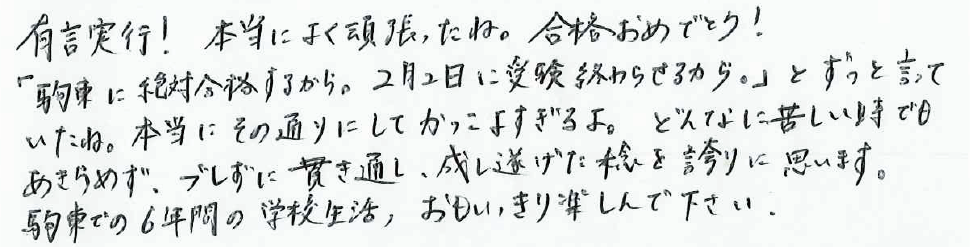 有言実行! 本当によく頑張ったね。合格おめでとう!
「駒東に絶対合格するから。2月2日に受験終わらせるから。」とずっと言って
いたね。本当にその通りにしてかっこよすぎるよ。どんなに苦しい時でも
あきらめず、ブレずに貫き通し、成し遂げた様を誇りに思います。
駒東での6年間の学校生活, おもいっきり楽しんで下さい.